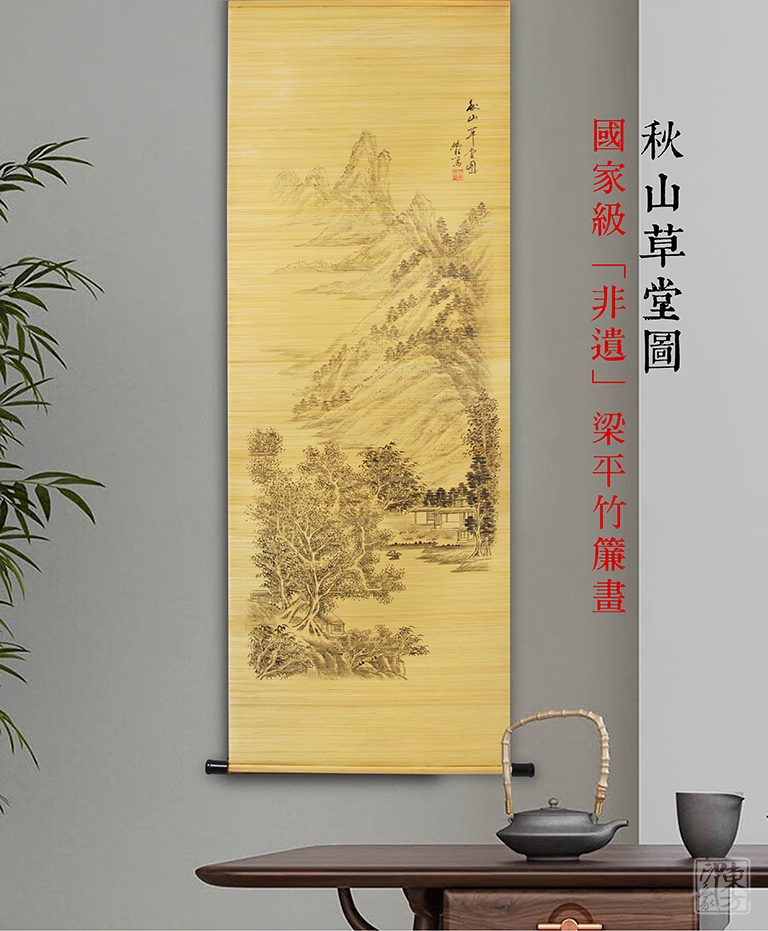 秋山草堂圖
國家級「非遺」梁平竹簾畫
秋山草堂圖